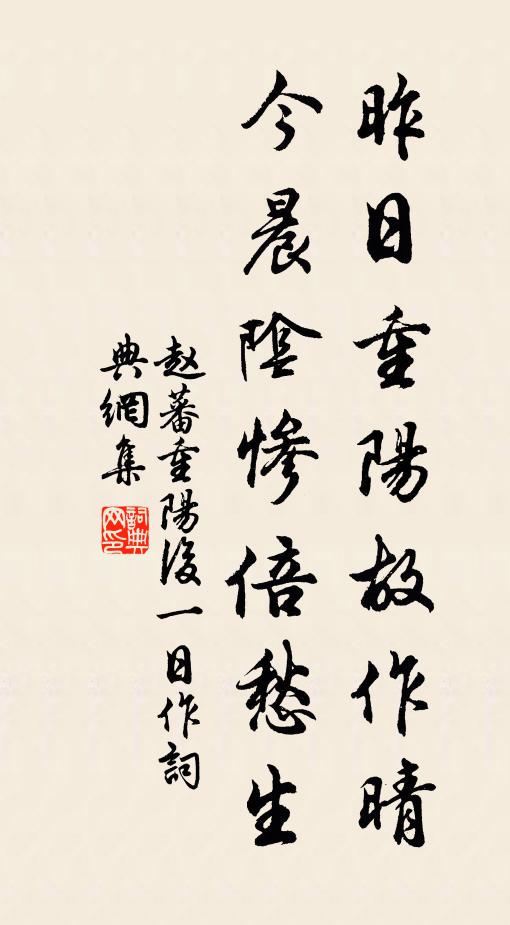 昨日重陽故作晴
今晨陰慘倍愁生
赵蕃重陽後一日作詞
典網集
詞典网印